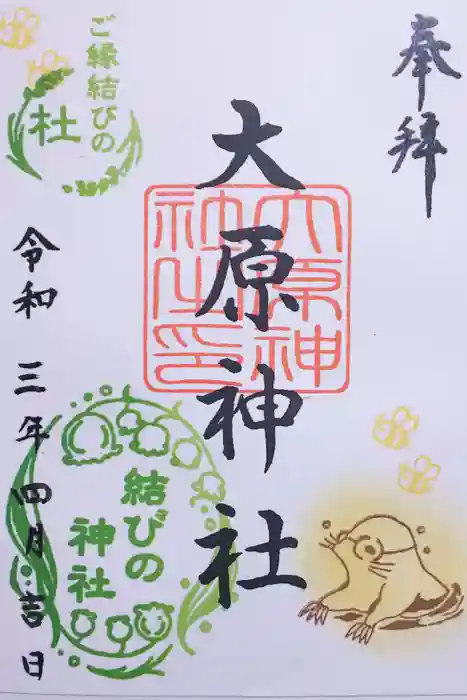 奉拝
大原神社
大原神
社印
ご縁結びの
杜
令和三年四月吉日
結びの
神社